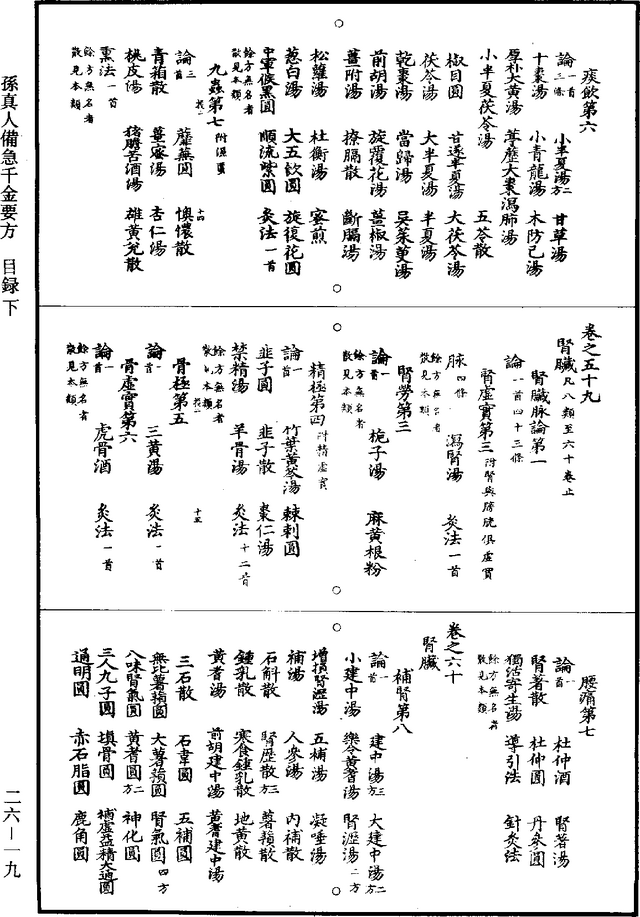 孫真人備急千金要方　目録下
痰飲第六
論一首三條　小半夏湯方二　甘草湯
十棗湯　小青龍湯　木防己湯
厚朴大黃湯　葶藶大棗瀉肺湯
小半夏茯苓湯　五苓散
椒目圓　甘遂半夏湯　大茯苓湯
茯苓湯　大半夏湯　半夏湯
乾棗湯　當歸湯　吳茱萸湯
前胡湯　旋覆花湯　薑椒湯
薑附湯　撩膈散　斷膈湯
松蘿湯　杜衡湯　蜜煎
葱白湯　大五飲圓　旋復花圓
中軍候黑圓　順流紫圓　灸法一首
餘方無名者散見本類
九蟲第七附濕䘌
論三首　蘼蕪圓　懊憹散
青葙散　薑蜜湯　杏仁湯
桃皮湯　猪膽苦酒湯　雄黃兌散
熏法一首
餘方無名者散見本類
卷之五十九
腎臟凡八類至六十卷止
腎臟脉論第一
論一首四十三條
腎虛實第三附腎與膀胱俱虛實
脉四條　瀉腎湯　灸法一首
餘方無名者散見本類
腎勞第三
論一首　梔子湯　麻黃根粉
餘方無名者散見本類
精極第四附精虛實
論一首　竹葉黃芩湯　棘刺圓
韭子圓　韭子散　棗仁湯
禁精湯　羊骨湯　灸法十二首
餘方無名者散見本類
骨極第五
論一首　三黃湯　灸法一首
骨虛實第六
論一首　虎骨酒　灸法一首
餘方無名者散見本類
腰痛第七
論一首　杜仲酒　腎著湯
腎著散　杜仲圓　丹參圓
獨活寄生湯　導引法　針灸法
餘方無名者散見本類
卷之六十
腎臟
補腎第八
論一首　建中湯方三　大建中湯方二
小建中湯　樂令黃耆湯　腎瀝湯二方
增損腎瀝湯　五補湯　凝唾湯
補湯　人參湯　內補散
石斛散　腎瀝散方三　薯蕷散
鍾乳散　寒食鍾乳散　地黃散
黃耆湯　前胡建中湯　黃耆建中湯
三石散　石韋圓　五補圓
無比薯蕷圓　大薯蕷圓　腎氣圓四方
八味腎氣圓　黃耆圓方二　神化圓
三人九子圓　填骨圓　補虛益精大通圓
通明圓　赤石脂圓　鹿角圓
二六—一九